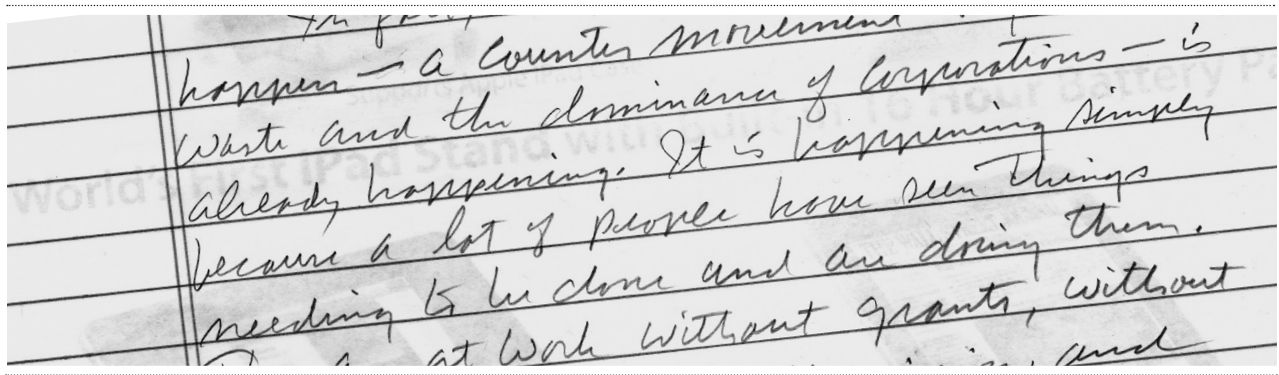 happen — a counter movement
waste and the dominance of corporations — is
already happening. It is happening simply
because a lot of people have seen things
needing to be done and are doing them.
at work without grants, without
and
World's First iPad Stand with Built-in 16 Hour Battery
Supports Apple iPad